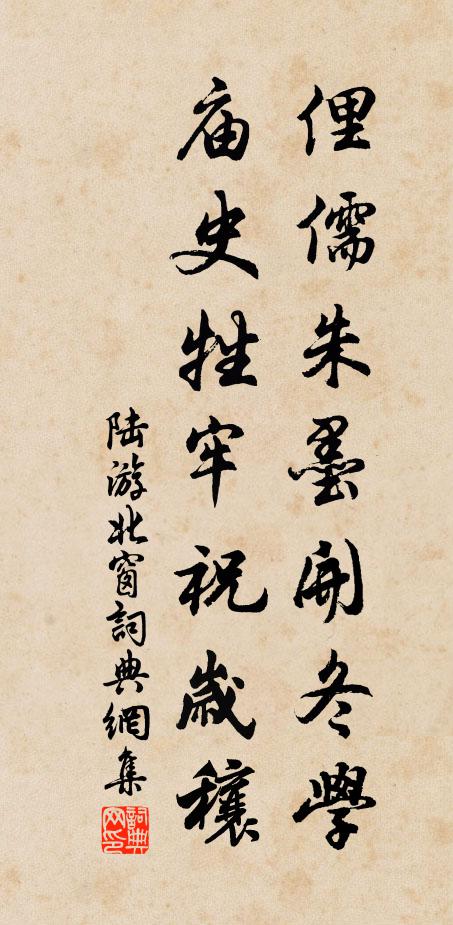 俚儒朱墨開冬學
庙史牲牢祝歲穰
陆游北窗詞典網集
詞典網印